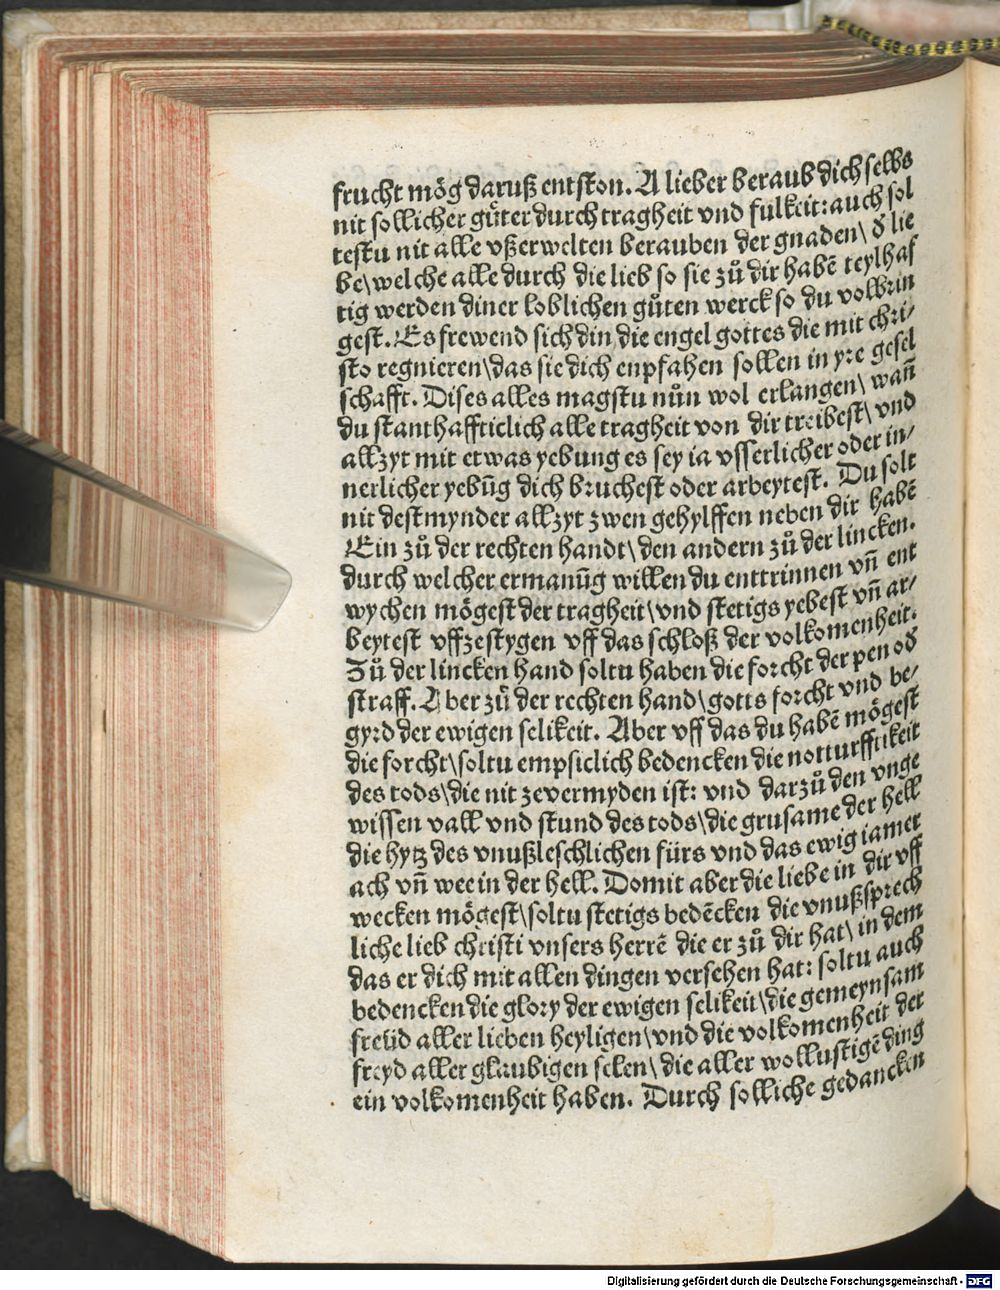 frucht mög daruß entston. A lieber beraub dich selbs
nit sollicher gůter durch tragheit vnd fulkeit: auch sol
testu nit alle vßerwelten berauben der gnaden\ ð lie
be\ welche alle durch die lieb so sie zů dir habẽ teylhaf
tig werden diner loblichen gůten werck so du volbrin
gest. Es frewend sich din die engel gottes die mit chri/
sto regnieren\ das sie dich enpfahen sollen in yre gesel
schafft. Dises alles magstu nůn wol erlangen\ wañ
du stanthaffticlich alle tragheit von dir treibest\ vnd
allzyt mit etwas yebung es sey ia vsserlicher oder in/
nerlicher yebũg dich bruchest oder arbeytest. Du solt
nit destmynder allzyt zwen gehylffen neben dir habẽ
Ein zů der rechten handt\ den andern zů der lincken.
durch welcher ermanũg willen du enttrinnen vñ ent
wychen mögest der tragheit\ vnd stetigs yebest vñ ar/
beytest vffzestygen vff das schloß der volkomenheit.
Zů der lincken hand soltu haben die forcht der pen oð
straff. Aber zů der rechten hand\ gotts forcht vnd be/
gyrd der ewigen selikeit. Aber vff das du habẽ mögest
die forcht\ soltu empsiclich bedencken die notturfftikeit
des tods\ die nit zevermyden ist: vnd darzů den vnge
wissen vall vnd stund des tods\ die grusame der hell
die hytz des vnußleschlichen fürs vnd das ewig iamer
ach vñ wee in der hell. Domit aber die liebe in dir vff
wecken mögest\ soltu stetigs bedẽcken die vnußsprech
liche lieb christi vnsers herrẽ die er zů dir hat\ in dem
das er dich mit allen dingen versehen hat: soltu auch
bedencken die glory der ewigen selikeit\ die gemeynsam
freüd aller lieben heyligen\ vnd die volkomenheit der
freyd aller glaubigen selen\ die aller wollustigẽ ding
ein volkomenheit haben. Durch solliche gedancken
Digitalisierung gefördert durch die Deutsche Forschungsgemeinschaft - DFG